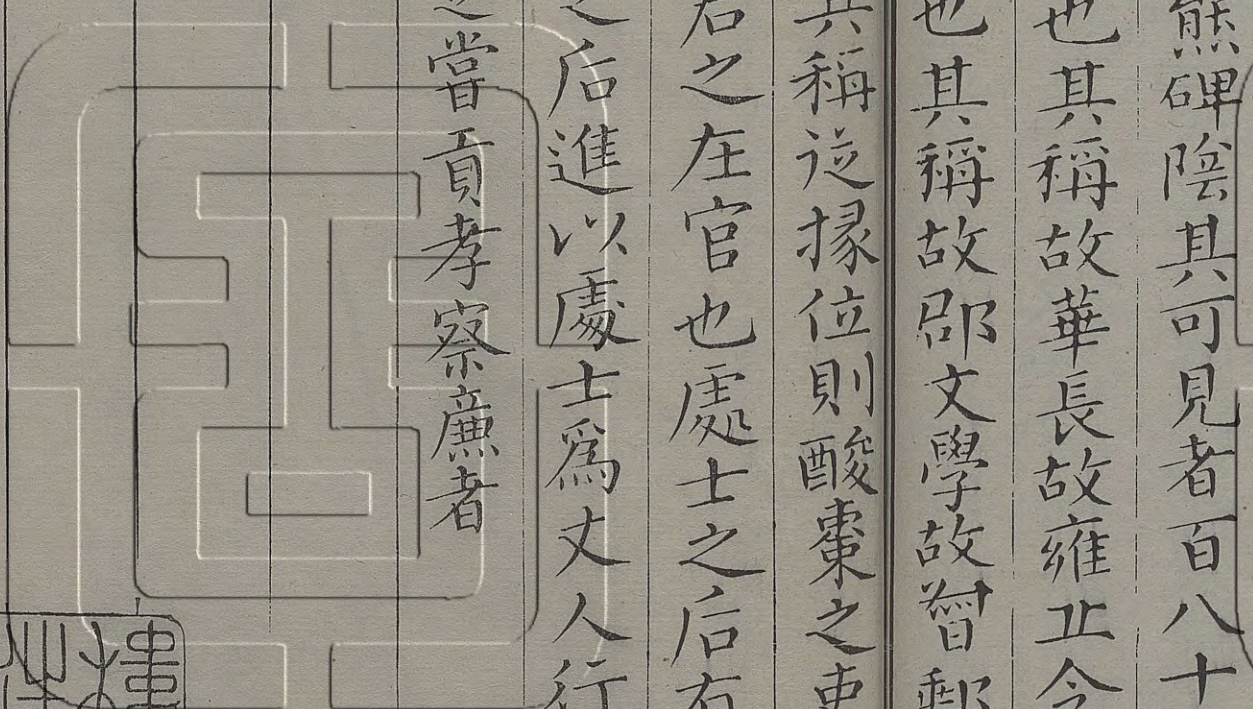 熊碑陰其可見者百八十
也其稱故華長故雍丘令
也其稱故郎文學故督郵
其稱從掾位則酸棗之吏
君之在官也處士之后有
之后進以處士為丈人行
之嘗貢孝察廉者